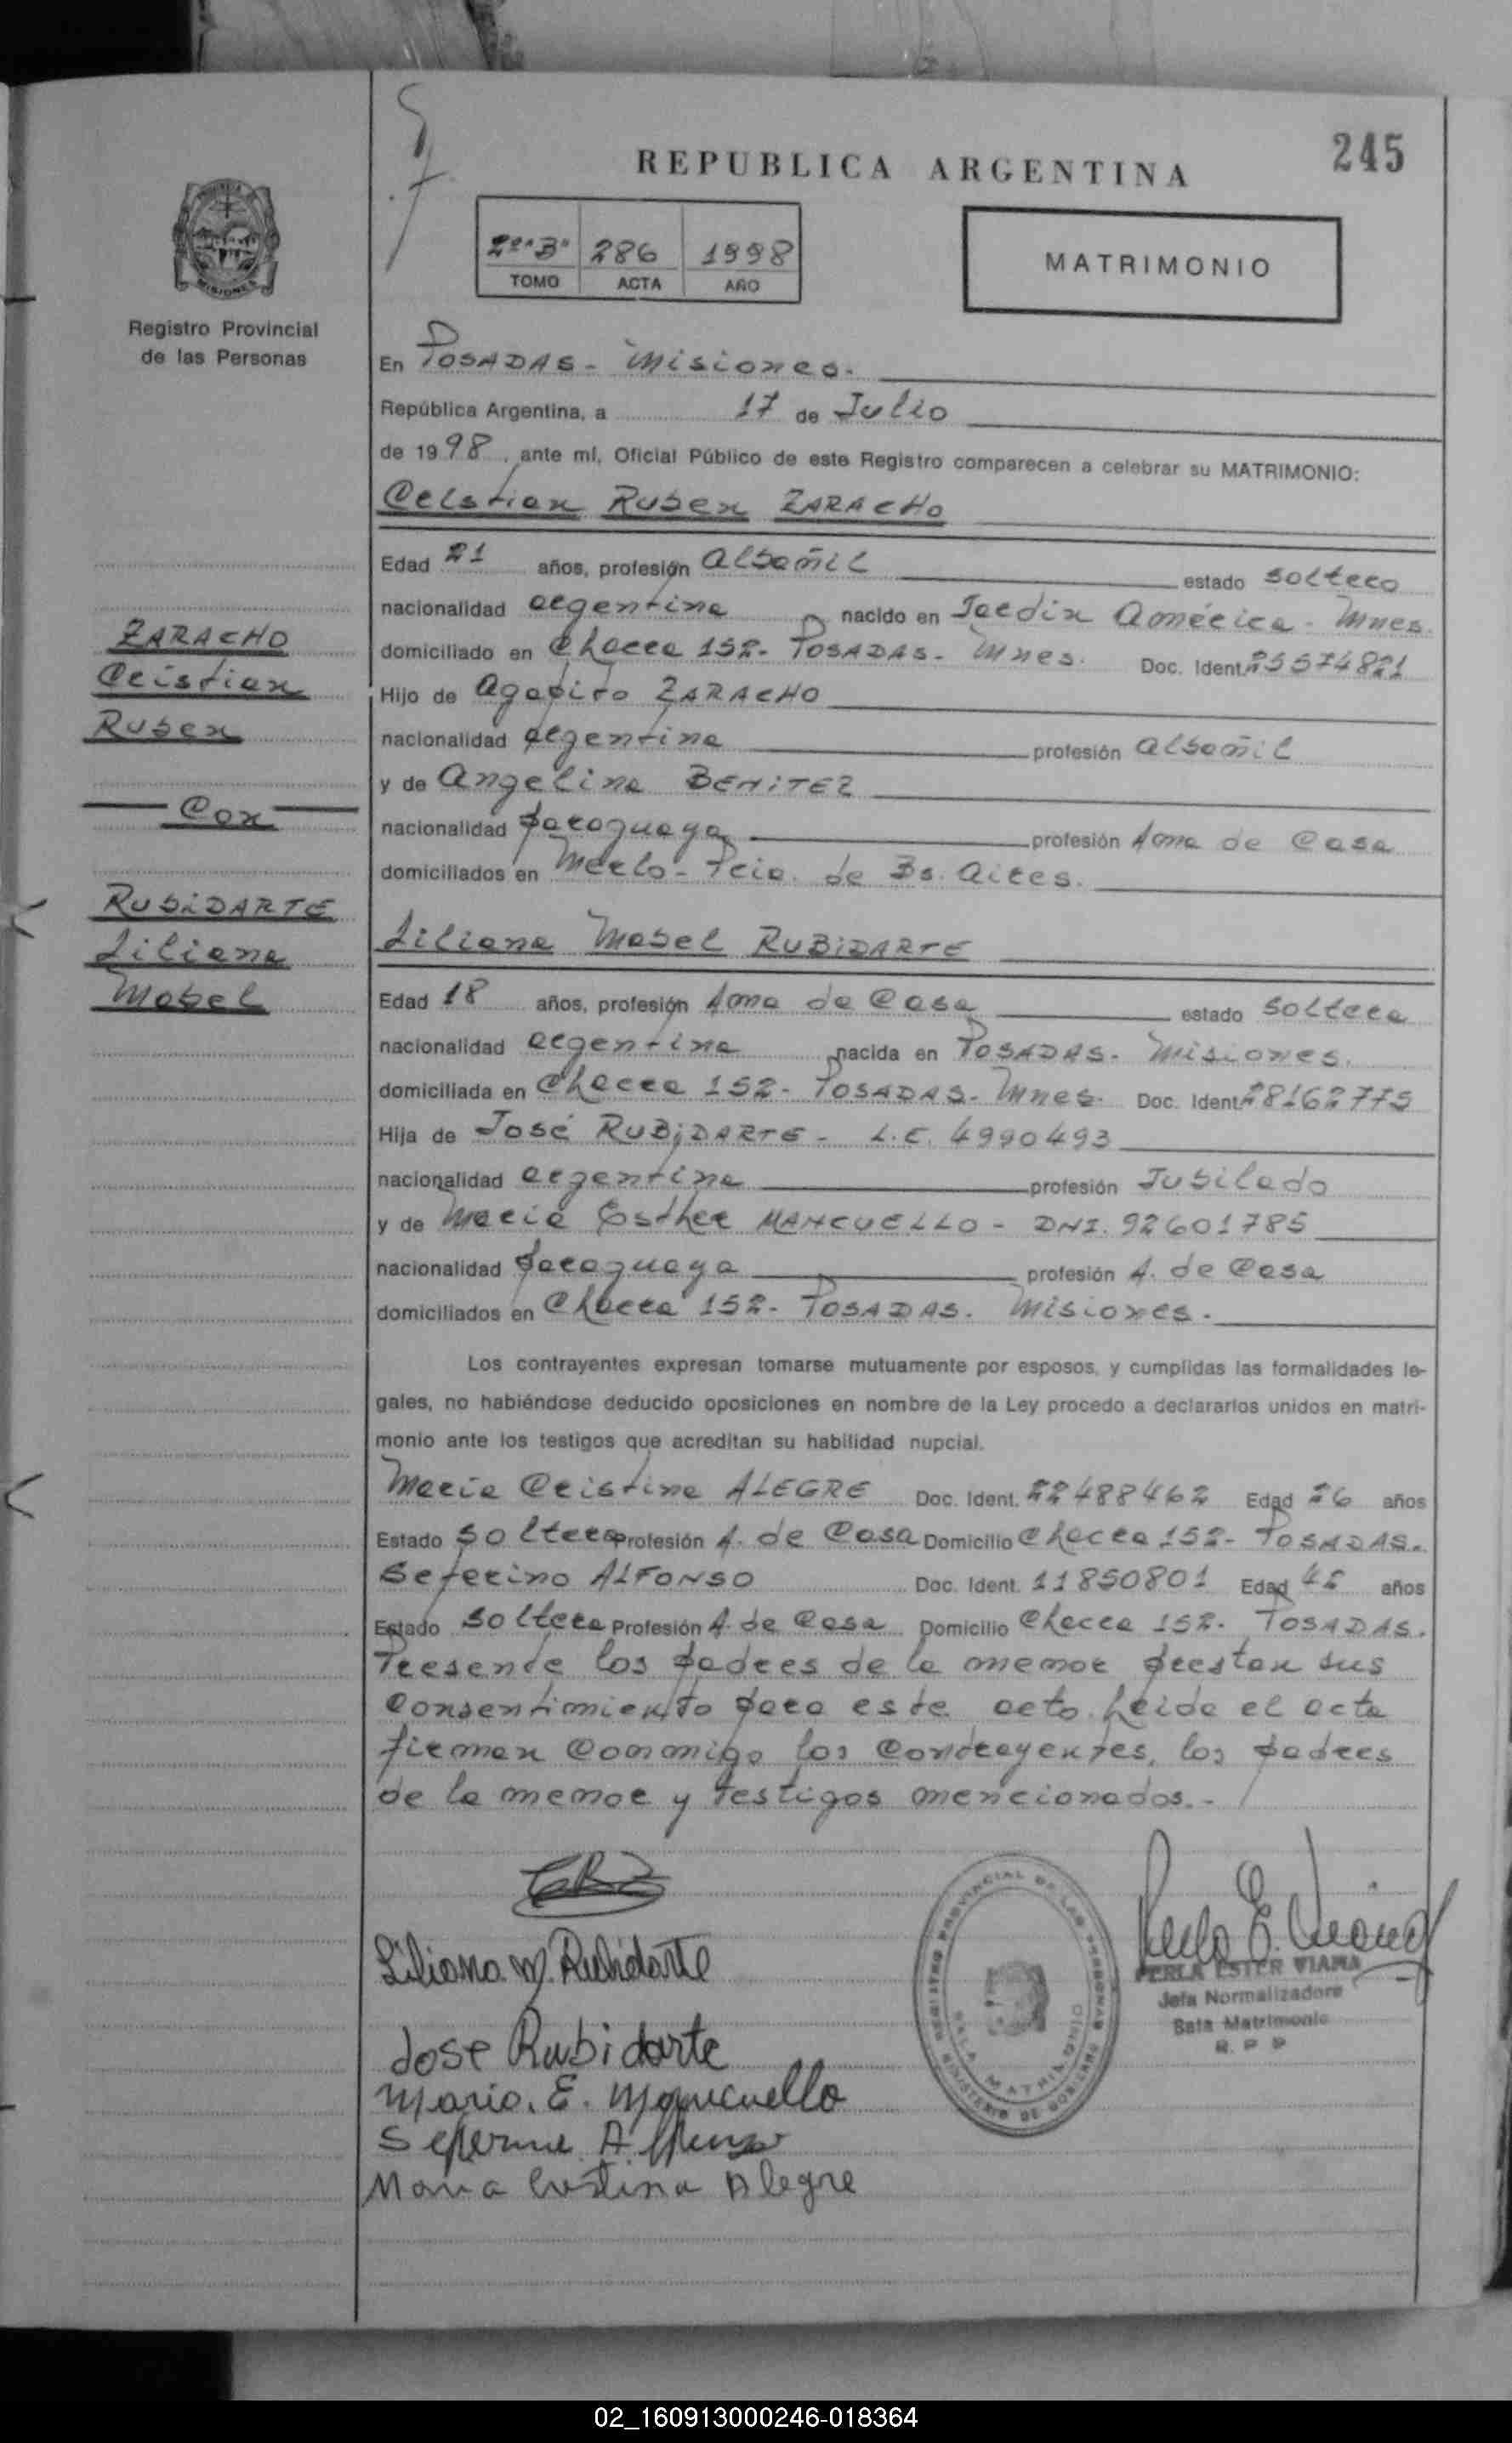 245
REPUBLICA ARGENTINA
2º "B" 286 1998
TOMO ACTA AÑO
MATRIMONIO
Registro Provincial
de las Personas
En POSADAS - Misiones.
República Argentina, a 17 de Julio
de 1998, ante mí, Oficial Público de este Registro comparecen a celebrar su MATRIMONIO:
Cristian Ruben ZARACHO
Edad 21 años, profesión albañil estado soltero
nacionalidad argentina nacido en Jardin América - Mnes.
domiciliado en Chacra 152- POSADAS- Mnes. Doc. Ident. 25574821
Hijo de Agapito ZARACHO
nacionalidad argentina profesión albañil
y de Angelina BENITEZ
nacionalidad paraguaya profesión Ama de Casa
domiciliados en Merlo - Pcia. de Bs. Aires.
Liliana Mabel RUBIDARTE
Edad 18 años, profesión Ama de Casa estado soltera
nacionalidad argentina nacida en POSADAS- Misiones.
domiciliada en Chacra 152- POSADAS- Mnes. Doc. Ident. 28162775
Hija de José RUBIDARTE - L.E. 4990493
nacionalidad argentina profesión Jubilado
y de María Esther MANCUELLO - DNI. 92601785
nacionalidad paraguaya profesión A. de Casa
domiciliados en Chacra 152- POSADAS. Misiones.
Los contrayentes expresan tomarse mutuamente por esposos, y cumplidas las formalidades le-
gales, no habiéndose deducido oposiciones en nombre de la Ley procedo a declararlos unidos en matri-
monio ante los testigos que acreditan su habilidad nupcial.
María Cristina ALEGRE Doc. Ident. 22488462 Edad 26 años
Estado soltera Profesión A. de Casa Domicilio Chacra 152- POSADAS.
Seferino ALFONSO Doc. Ident. 11850801 Edad años
Estado soltera Profesión A. de Casa Domicilio Chacra 152- POSADAS.
Presente los padres de la menor prestan sus
consentimiento para este acto. Leida el acta
firman conmigo los contrayentes, los padres
de la menor y testigos mencionados.-
ZARACHO
Cristian
Ruben
Con
RUBIDARTE
Liliana
Mabel
Liliana M. Rubidarte
Jose Rubidarte
Maria. E. Mancuello
Maria Cristina Alegre
REGISTRO PROVINCIAL DE LAS PERSONAS
SALA MATRIMONIO
MINISTERIO DE GOBIERNO
PERLA ESTER VIANA
Jefa Normalizadora
Sala Matrimonio
R. P. P
02_160913000246-018364